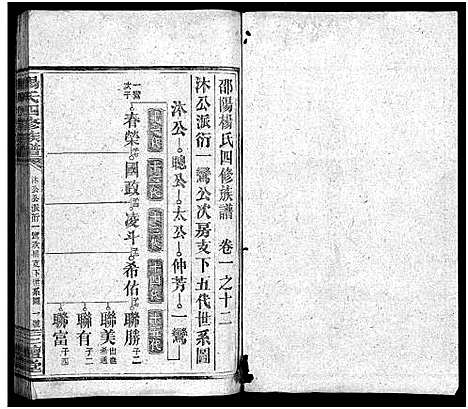 邵陽楊氏四修族譜 卷一之十二
沐公派衍一鸞公次房支下五代世系圖
沐公 聰公 太公 仲芳 一鸞
十一代 十二代 十三代 十四代 十五代
一鸞次子 春榮 國政 凌斗 希佑 聯勝 子二
聯美 出
聯有 子二
聯富 子四
楊氏四修族譜 卷
沐公派衍一鸞次房支下世系圖 一號